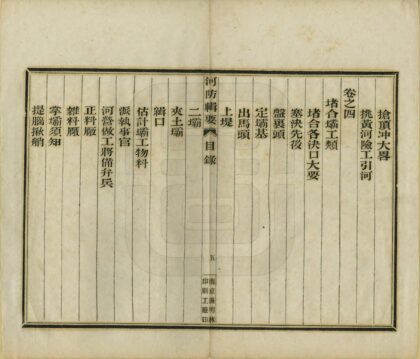 搶頂冲大畧
挑黃河險工引河
卷之四
堵合壩工類
堵台各決口大要
塞決先後
盤裏頭
定壩基
出馬頭
上堤
河防輯要
目錄
五
二壩
夾土壩
緝口
估計壩工物料
派執事官
河營做工將備弁兵
正料廠
雜料廠
掌壩須知
提腦揪艄